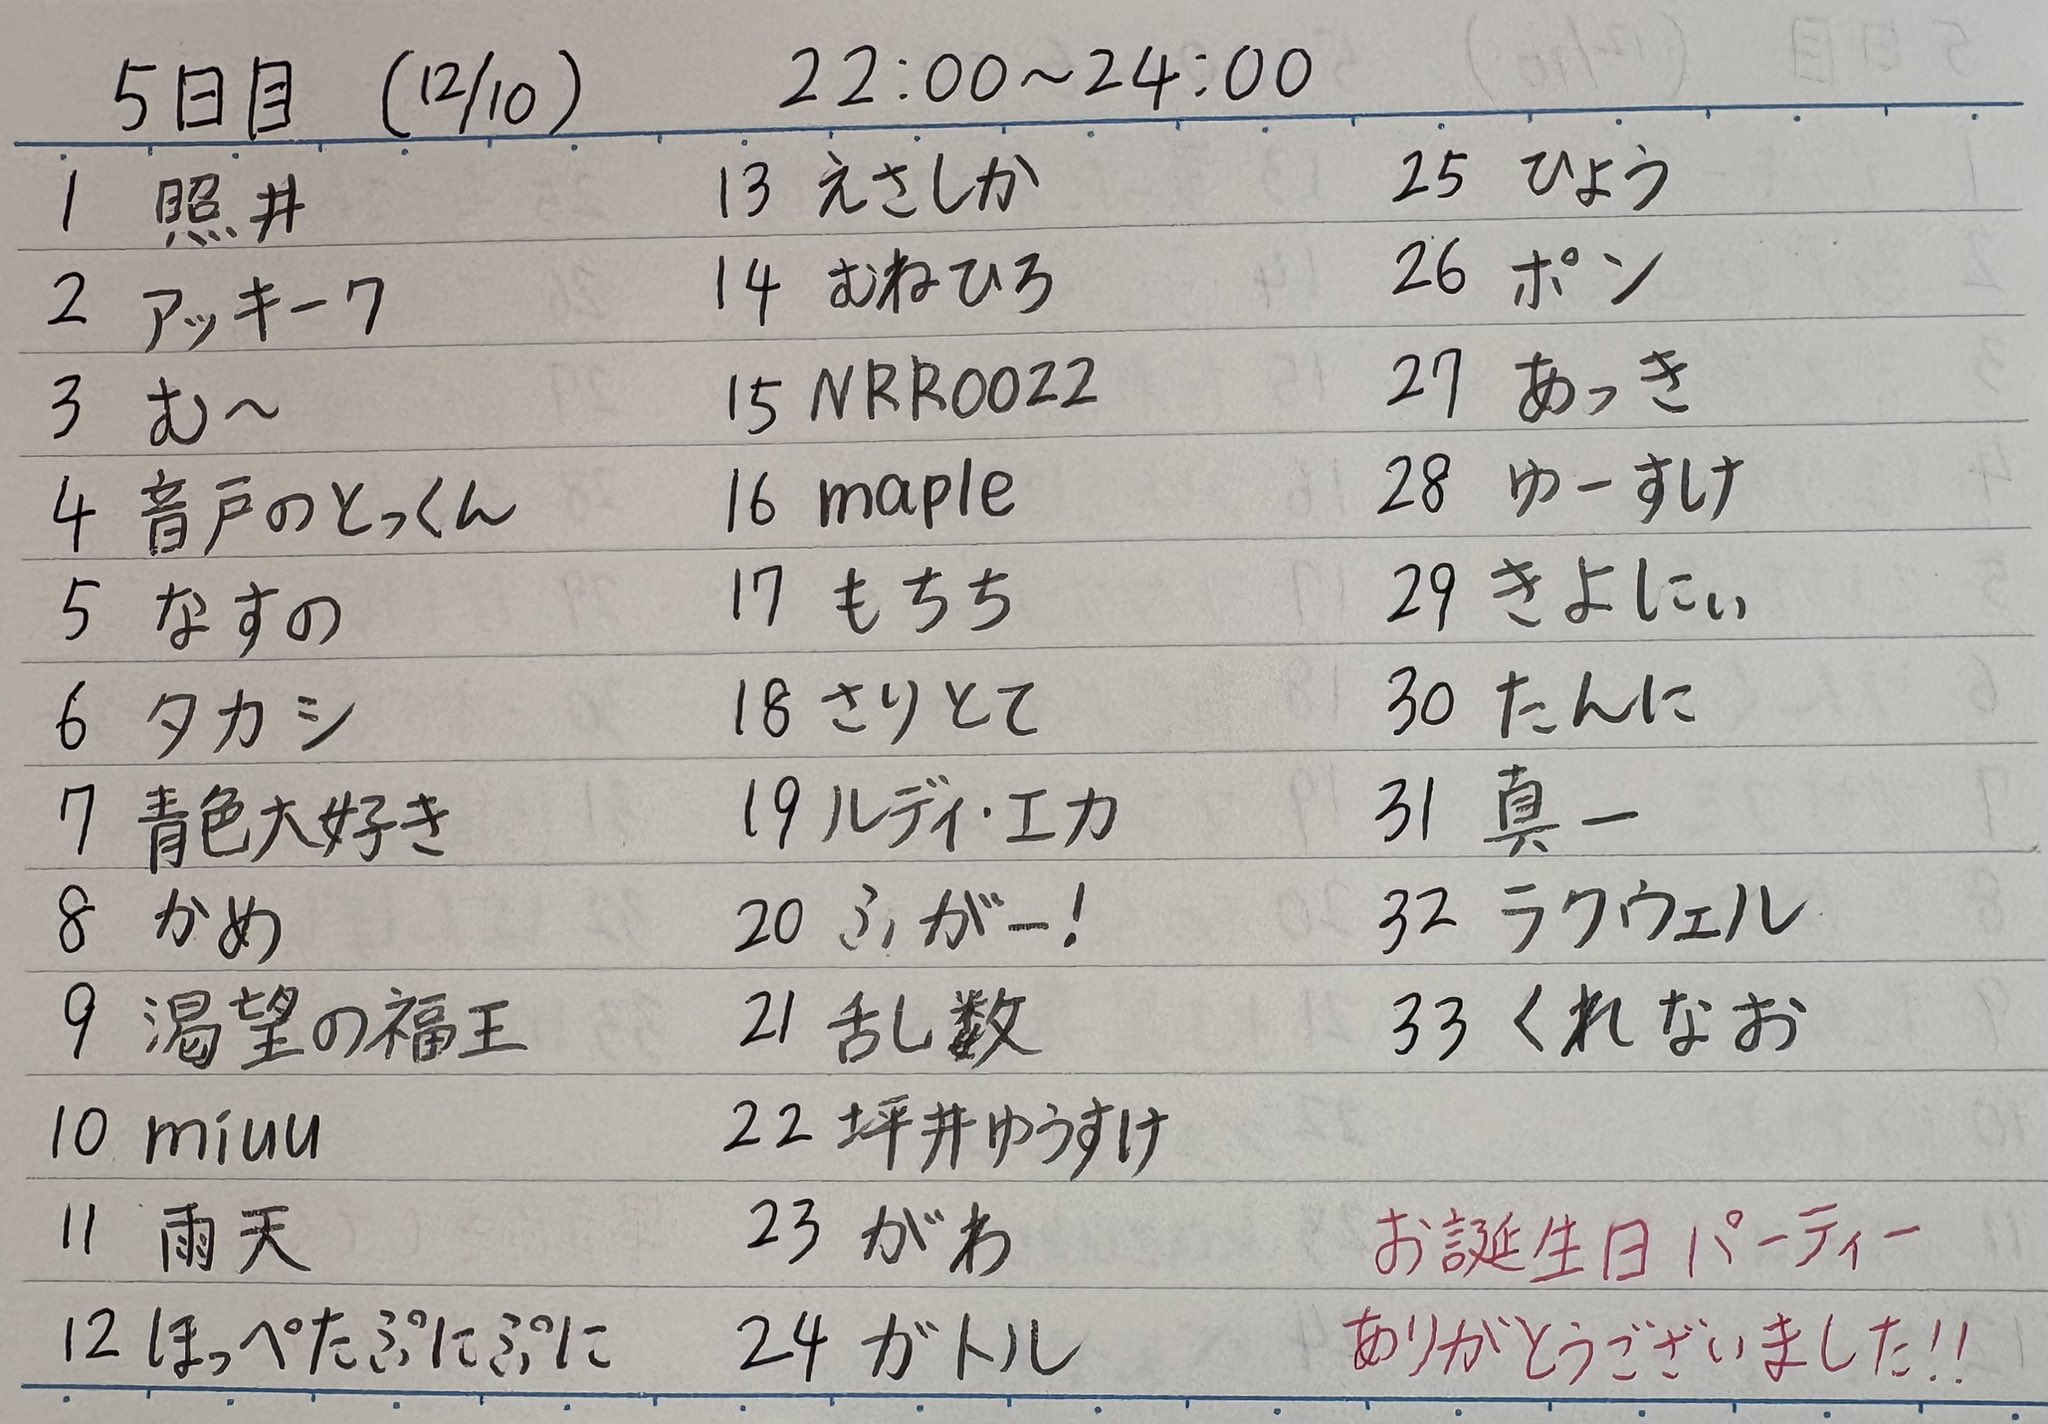 5日目 (12/10) 22:00～24:00
1 照井
2 アッキーワ
3 む～
4 音戸のとっくん
5 なすの
6 タカシ
7 青色大好き
8 かめ
9 渇望の福王
10 miuu
11 雨天
12 ほっぺたぷにぷに
13 えさしか
14 むねひろ
15 NRR0022
16 maple
17 もちち
18 さりとて
19 ルディ・エカ
20 ふがー!
21 乱数
22 坪井ゆうすけ
23 がわ
24 ガトル
25 ひょう
26 ポン
27 あっき
28 ゆーすけ
29 きよにぃ
30 たんに
31 真一
32 ラクウェル
33 くれなお
お誕生日パーティー
ありがとうございました!!